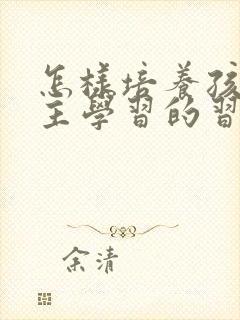 怎樣培養孩
主學習的習
余清